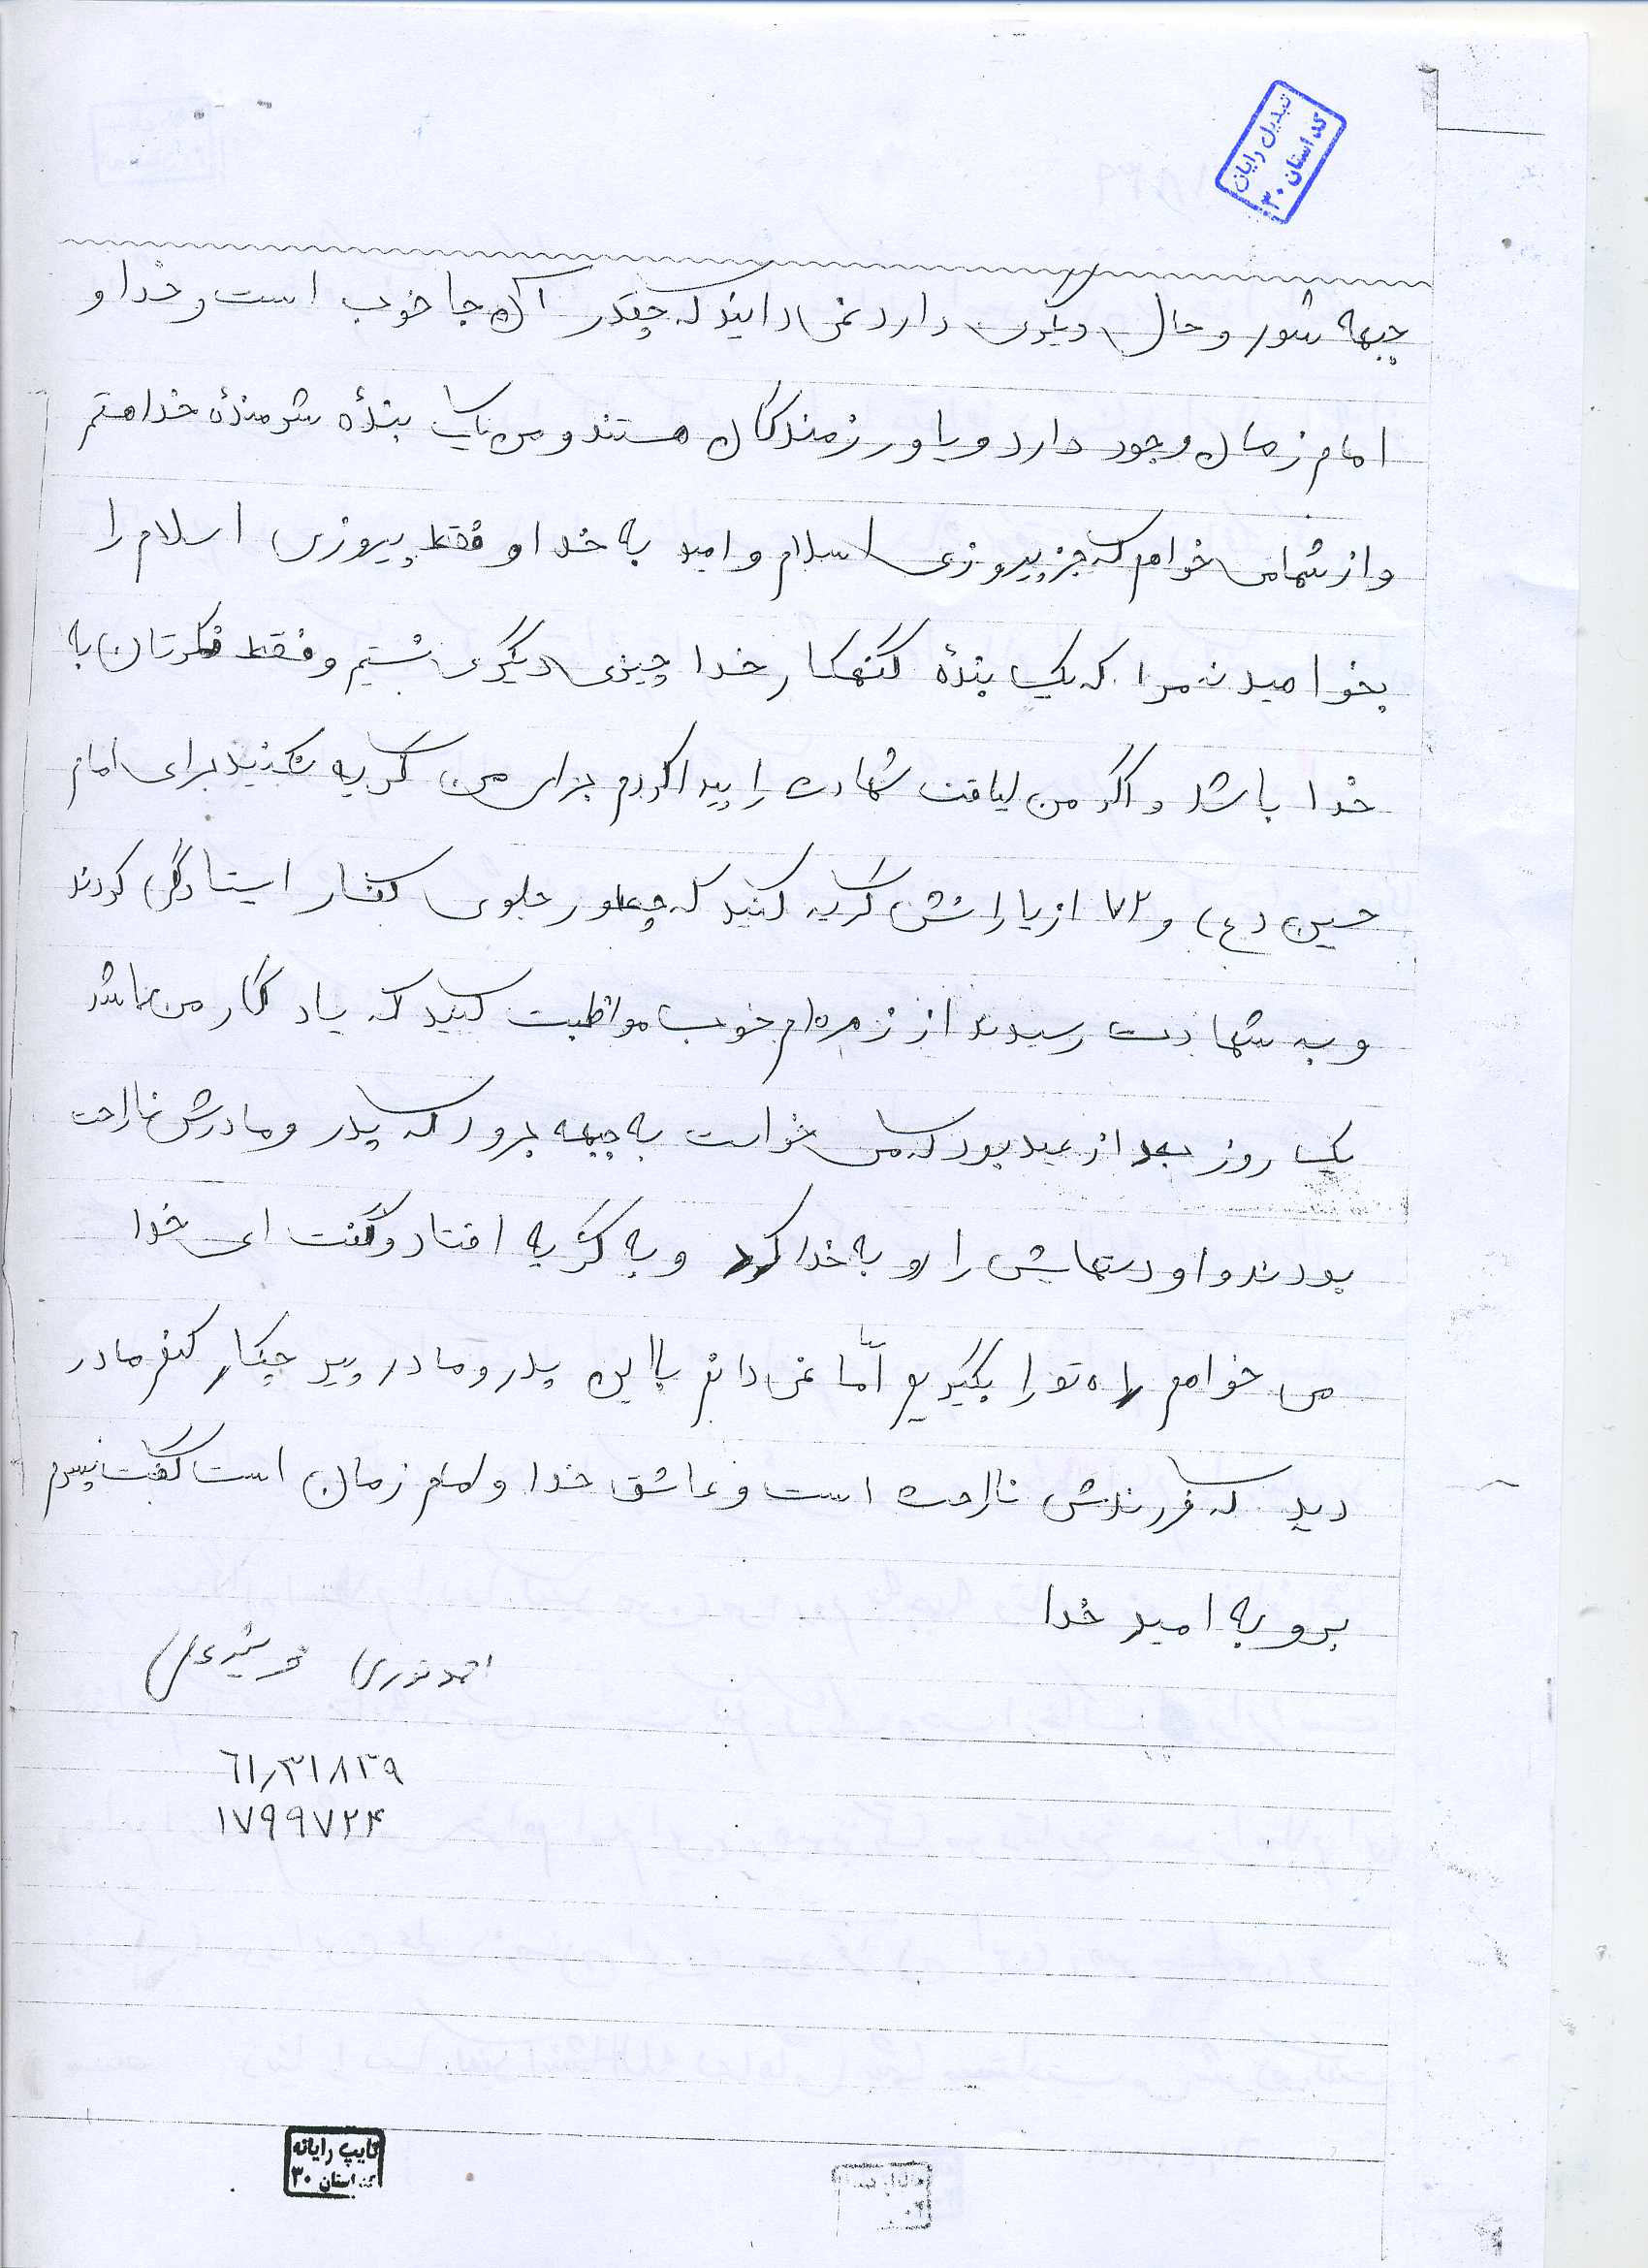 تبدیل رایان
کد استان ۳۰
جبهه شور و حال دیگری دارد نمی دانید که چقدر آن جا خوب است و خدا و
امام زمان وجود دارد و یاور رزمندگان هستند و من یک بندهٔ شرمندهٔ خدا هستم
و از شما می خواهم که جز پیروزی اسلام و امید به خدا و فقط پیروزی اسلام را
بخواهید نه مرا که یک بندهٔ گنهکار خدا چیزی دیگری نیستم و فقط فکرتان به
خدا باشد و اگر من لیاقت شهادت را پیدا کردم برای من گریه نکنید برای امام
حسین (ع) و ۷۲ از یارانش گریه کنید که چطور جلوی کفار ایستادگی کردند
و به شهادت رسیدند از زهره ام خوب مواظبت کنید که یادگار من باشد
یک روز بعد از عید بود کسی می خواست به جبهه برود که پدر و مادرش ناراحت
بودند و او دستهایش را رو به خدا کرد و به گریه افتاد و گفت ای خدا
می خواهم راه تو را بگیریم امّا نمی دانم با این پدر و مادر پیر چکار کنم مادر
دید که فرزندش ناراحت است و عاشق خدا و امام زمان است گفت پسرم
برو به امید خدا
احمد نوری
۶۱٫۳۱۸۳۹
۱۷۹۹۷۲۴
تایپ رایانه
کد استان ۳۰